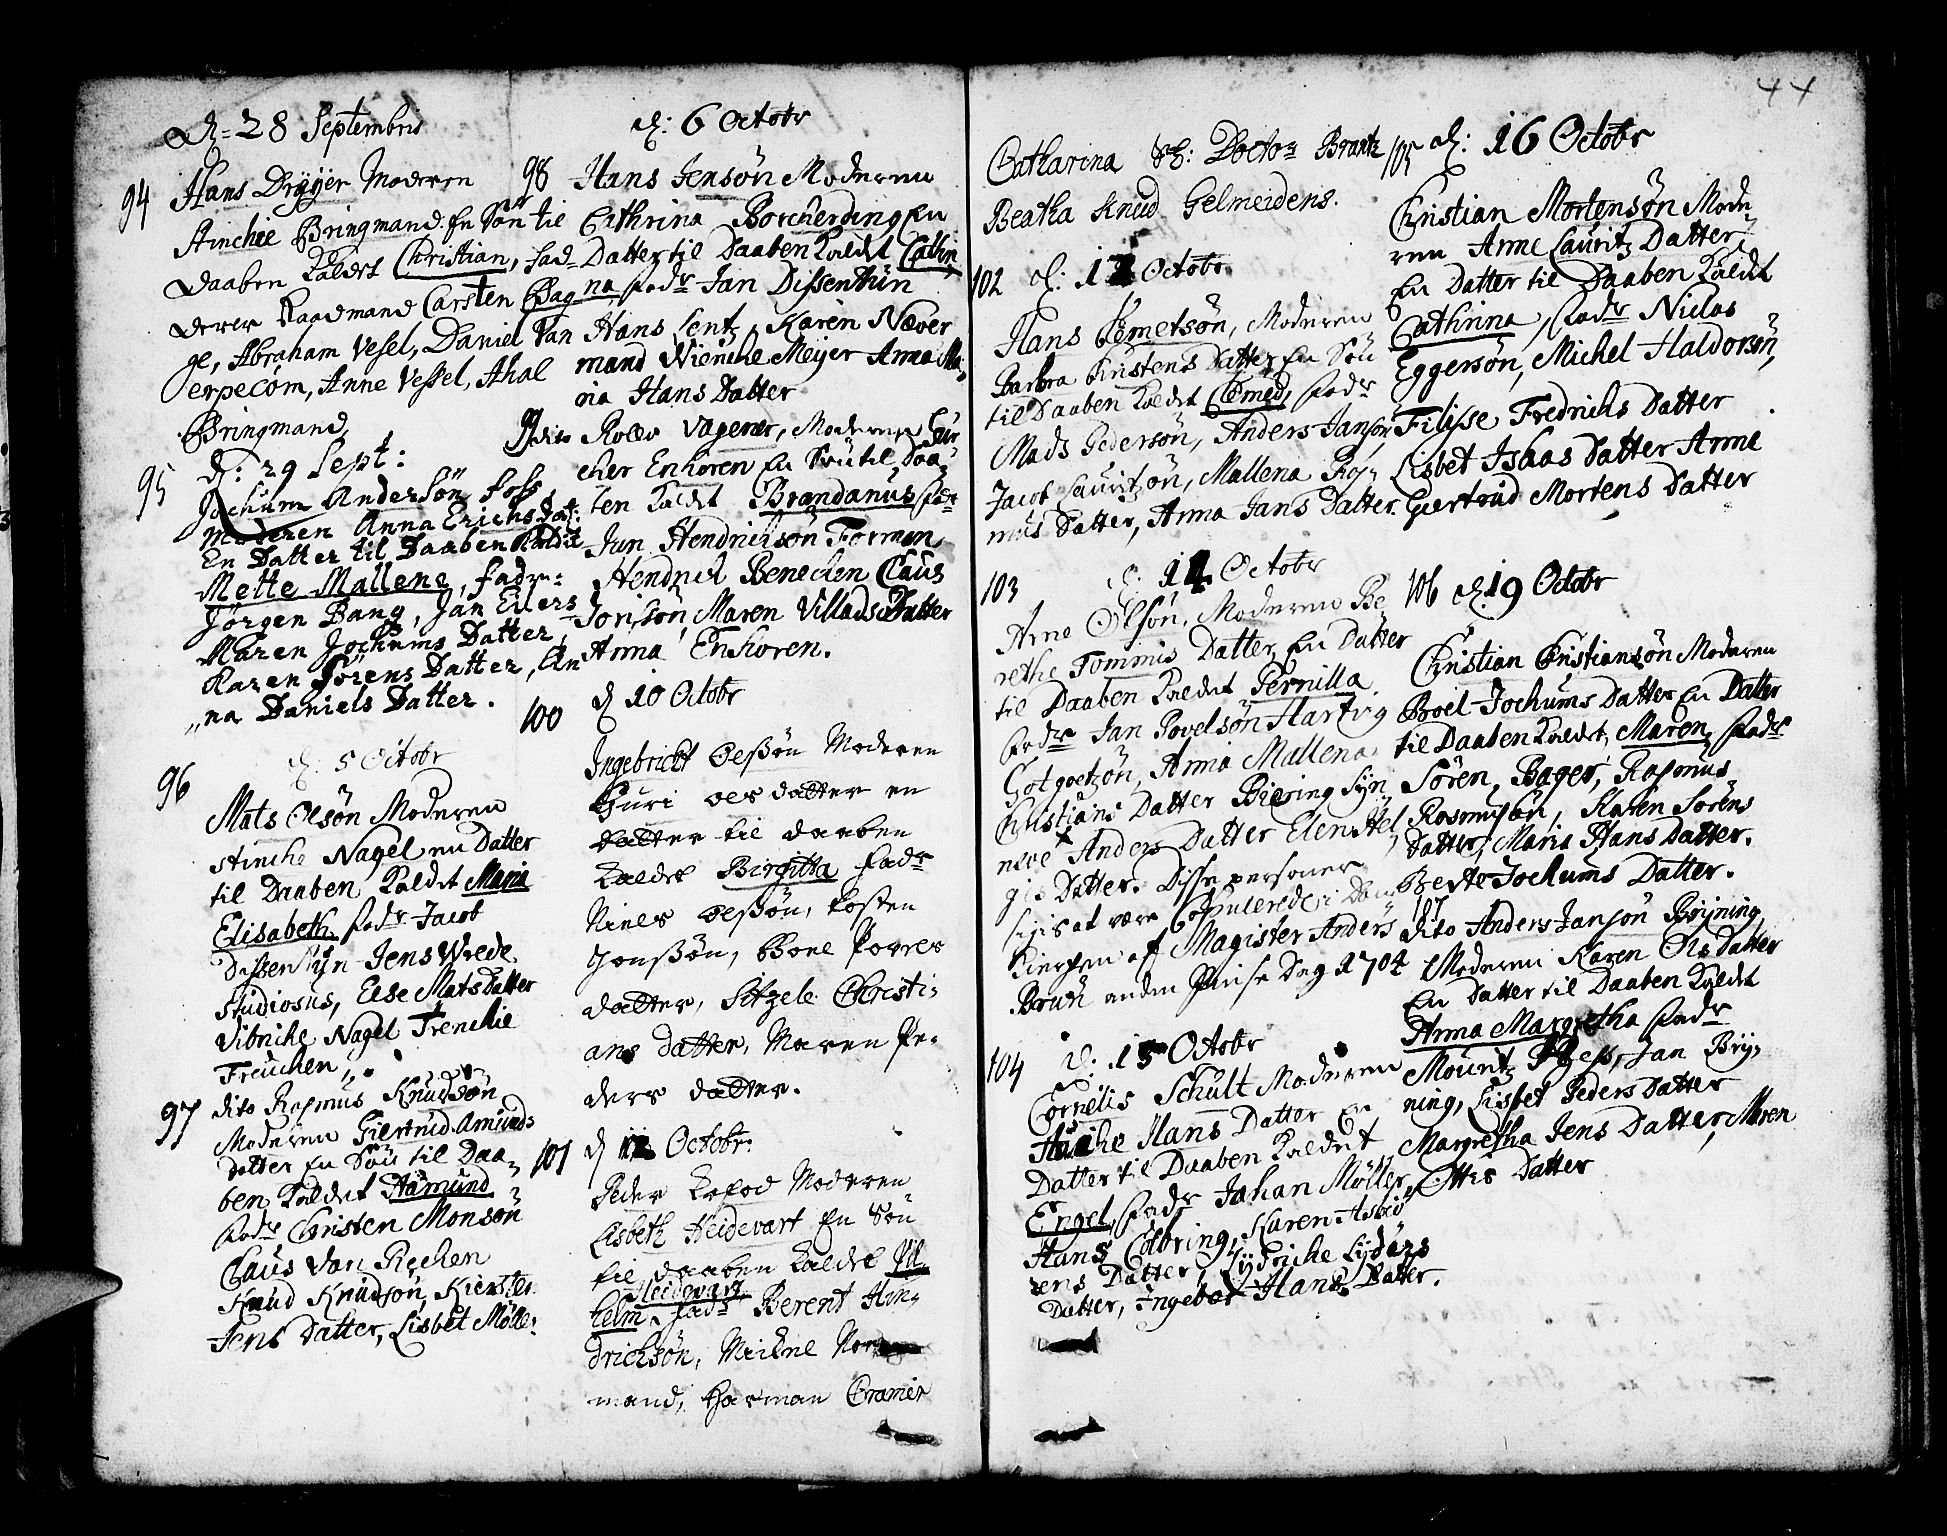 D: 28 Septembris
94 Hans Dreyer Moderen
Anchee Bringmand. En Søn til
Daaben Kaldet Christian, fad-
derer Raadmand Carsten Bag
ge, Abraham Vesel, Daniel Van
erpecom, Anne Vessel, Ahal
Bringmand
95 d: 29 Sept:
Jochum Andersön Foss
Moderen Anna Erichs Dat:
En Datter til Daaben Kaldet
Mette Mallene, fadr:
Jörgen Bang, Jan Eilers
Maren Jochums Datter,
Karen Sörens Datter, An
„na Daniels Datter.
96 d: 5 Octobr
Mats Olsön Moderen
Stinche Nagel en Datter
til Daaben Kaldet Maria
Elisabeth, fadr Jacob
Dissentyn Jens Wrede
Studiosus, Else Mats Datter
Vibriche Nagel Trenchie
Freuchen,
97 dito Rasmus Knudsön
Moderen Giertrud Amunds
Datter En Sön til Daa-
ben Kaldet Aamund
fadr Christen Monsön
Claus Van Rechen
Knud Knudsön, Kiersten
Jens Datter, Lisbet Mölle:
d: 6 Octobr
98 Hans Jensön Moderen
Cathrina Borcherding En
Datter til Daaben Kaldet Cathri
na, fadr Jan Dissenthün
Hans Lentz, Karen Næver
mand Wienche Meyer Anna Ma,
ria Hans Datter
99 dito Rollo Vagener, Moderen Gur
cher Enhoren En Sön til Daa-
ben Kaldt Brandanus fadr
Jun Hendrichsön Forman
Hendrich Benechen Claus
Jorisön Maren Villads Datter
Anna Enhoren.
100 d 10 Octobr
Ingebricht Oelssön Moderen
Guri oels datter en
datter til daaben
kaldet Birgitta fadr
Niels Oelssön, Kosten
Jonssön, Boel Povels
datter, Sitzele Christi-
ans datter, Maren Pe-
ders datter.
101 d 12 Octobr:
Peder Kofod Moderen
Lisbeth Heidevart En Sön
til daaben kaldet Vil
Heidevart
helm, fadr Berent Hin-
drichsön, Michel Nor
mand, Harman Cramer
44
Catharina Sh: Doctor Brantz
Beatha Knud Gelmeidens.
102 d: 12 Octobr
Hans Clemetsön, Moderen
Barbra Cristens Datter En Sön
til Daaben Kaldet Clemed, fadr
Mads Pedersön, Anders Jansön
Jacob Lauritzön, Mallena Ras-
mus Datter, Anna Jans Datter.
103 d: 14 Octobr
Arne Olsön, Moderen Be
rethe Tommis Datter, En Datter
til Daaben Kaldet Pernilla
fadr Jan Povelsön Hartvig
Gotgoetzön, Anna Mallena
Christians Datter Biering Syn
nove Anders Datter Elen Hel
gis Datter. Disse personer
sigis at være Copulerede i Dom
Kierchen af Magister Anders
Bruch anden Pinse Dag 1704
104 d: 15 Octobr
Cornelis Schult Moderen
Hanche Hans Datter En
Datter til Daaben Kaldet
Engel, fadr Johan Möller
Hans Colbring, Karen Asbiö
rens Datter, Lydriche Lyders
Datter, Ingebor Hans Datter.
105 d: 16 Octobr
Christian Mortensön Mode-
ren Anne Lauritz Datter
En Datter til Daaben Kaldet
Cathrina, fadr Niclas
Eggersön, Michel Haldorsön,
Filisse Fredrichs Datter
Lisbet Isaas Datter Anne
Giertrud Mortens Datter
106 d: 19 Octobr
Christian Christiansön Moderen
Broel Jochums Datter En Datter
til Daaben Kaldet, Maren, fadr
Sören Bager, Rasmus
Rasmusön, Karen Sörens
Datter, Maria Hans Datter.
Berte Jochums Datter.
107
dito Anders Jansön Bryning
Moderen Karen Ols Datter
En Datter til Daaben Kaldet
Anna Margretha fadr
Mouritz Bess, Jan Bry-
ning, Lisbet Peders Datter
Margretha Jens Datter, Maren
Ottis Datter